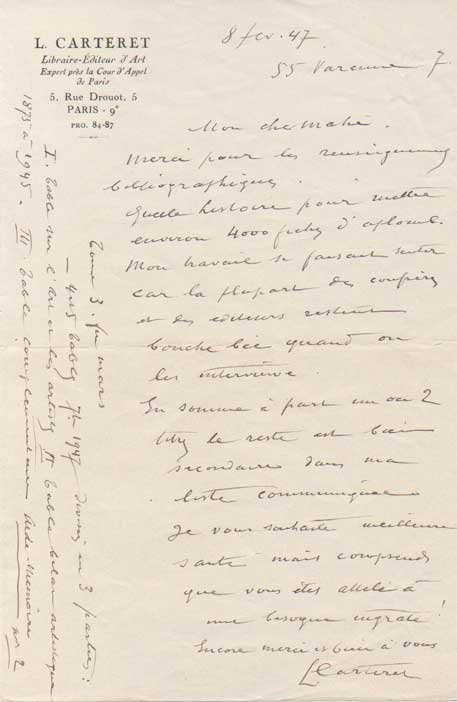 L. CARTERET
Libraire-Éditeur d'Art
Expert près la Cour d'Appel
de Paris
5, Rue Drouot, 5
PARIS - 9e
PRO. 84-87
8 fev. 47.
55 Varenne 7.
Mon cher Mahé.
Merci pour les renseignements
bibliographiques.
Quelle histoire pour mettre
environ 4000 fiches d'aplomb.
Mon travail se faisant
car la plupart des confrères
et des editeurs restent
bouche bée quand on
les interviewe.
En somme à part un ou 2
titres le reste est bien
secondaire dans ma
liste communiquée
Je vous souhaite meilleure
santé mais comprends
que vous êtes attelé à
une besogne ingrate!
Encore merci et bien à vous
L Carteret
Tome 3. fin mars
4 tables 1947 divisé en 3 parties:
I. Table sur l'Art et les artistes II Table bilan artistique
1875 à 1945. III Table complémentaire Aide-Mémoire